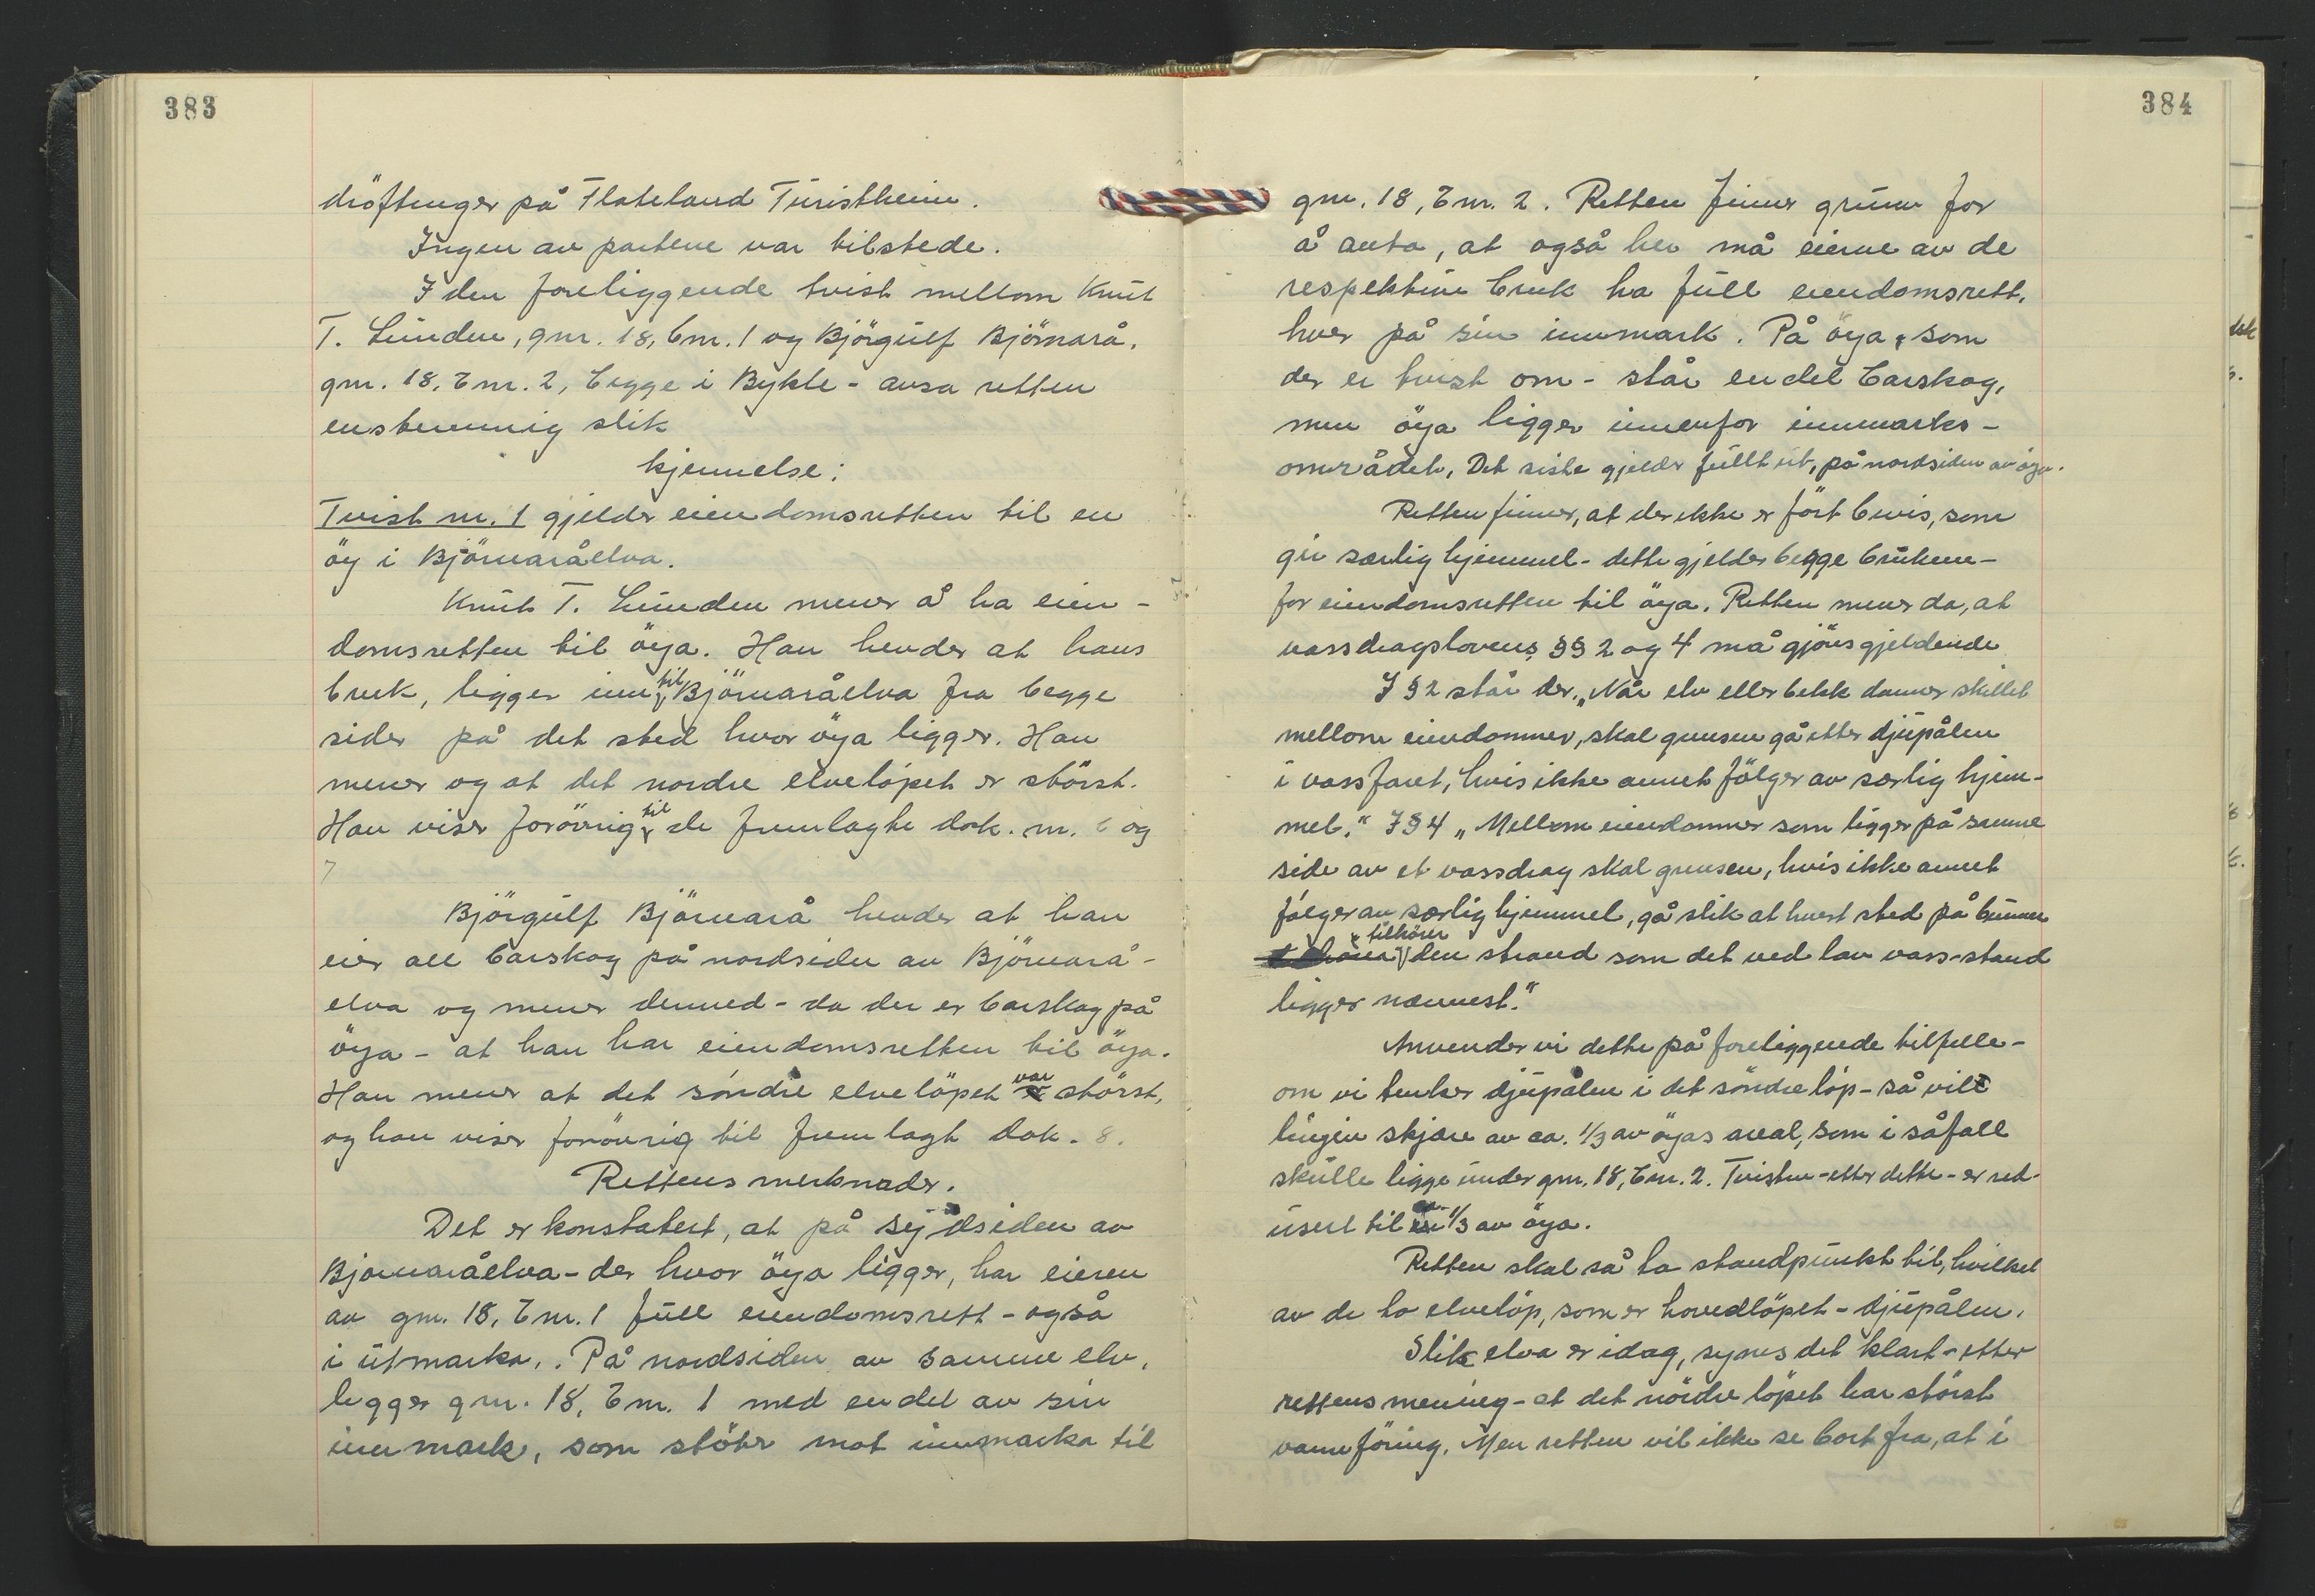 383
dröftinger på Flateland Turistheim.
Ingen av partene var tilstede.
I den foreliggende tvist mellom Knut
T. Lunden, gnr. 18, bnr. 1 og Björgulf Björnarå,
gnr. 18, bnr. 2, begge i Bykle - avsa retten
enstemmig slik
kjennelse:
Tvist nr. 1 gjelder eiendomsretten til en
öy i Björnaråelva.
Knut T. Lunden mener å ha eien-
domsretten til öya. Han hevder at hans
bruk, ligger inn til Björnaråelva fra begge
sider på det sted hvor öya ligger. Han
mener og at det nordre elvelöpet er störst.
Han viser forövrig til de fremlagte dok. nr. 6 og
7
Björgulf Björnarå hevder at han
eier all barskog på nordsiden av Björnarå-
elva og mener dermed - da der er barskog på
öya - at han har eiendomsretten til öya.
Han mener at det söndre elvelöpet var störst,
og han viser forövrig til fremlagt dok. 8.
Rettens merknader.
Det er konstatert, at på sydsiden av
Björnaråelva - der hvor öya ligger, har eieren
av gnr. 18, bnr. 1 full eiendomsrett - også
i utmarka. På nordsiden av samme elv,
ligger gnr. 18, bnr. 1 med endel av sin
innmark, som stöter mot innmarka til
384
gnr. 18, bnr. 2. Retten finner grunn for
å anta, at også her må eierne av de
respektive bruk ha full eiendomsrett,
hver på sin innmark. På öya, som
der er tvist om - står endel barskog,
men öya ligger innenfor innmarks-
området. Det siste gjelder fullt ut, på nordsiden av öya.
Retten finner, at der ikke er fört bevis, som
gir særlig hjemmel - dette gjelder begge brukene -
for eiendomsretten til öya. Retten mener da, at
vassdragslovens §§ 2 og 4 må gjöres gjeldende
I § 2 står der „Når elv eller bekk danner skillet
mellom eiendommer, skal grensen gå etter djupålen
i vassfaret, hvis ikke annet fölger av særlig hjem-
mel." I § 4 „Mellom eiendommer som ligger på samme
side av et vassdrag skal grensen, hvis ikke annet
fölger av særlig hjemmel, gå slik at hvert sted på bunnen
tilhörer den strand som det ved lav vass-stand
ligger nærmest."
Anvender vi dette på foreliggende tilfelle -
om vi tenker djupålen i det söndre löp - så vil
linjen skjære av ca. 1/3 av öyas areal, som i såfall
skulle ligge under gnr. 18, bnr. 2. Tvisten - etter dette - er red-
usert til ca 1/3 av öya.
Retten skal så ta standpunkt til, hvilket
av de to elvelöp, som er hovedlöpet - djupålen.
Slik elva er idag, synes det klart - etter
rettens mening - at det nordre löpet har störst
vannföring. Men retten vil ikke se bort fra, at i